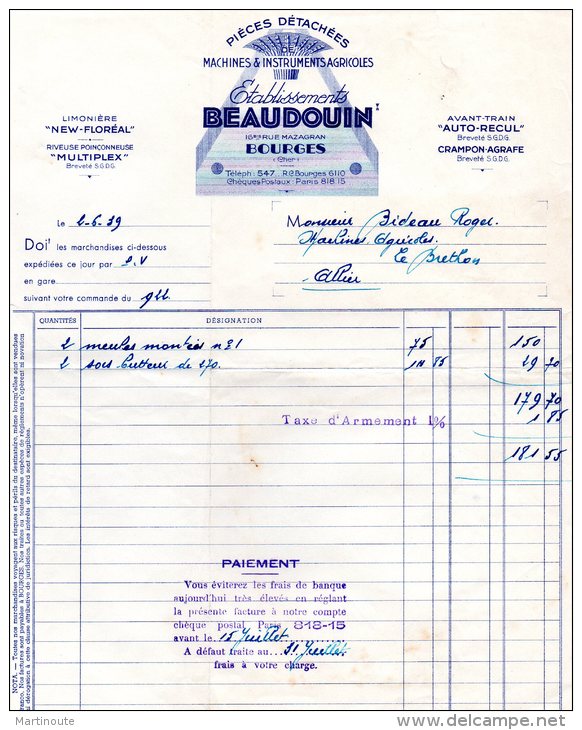 PIÈCES DÉTACHÉES
DE
MACHINES & INSTRUMENTS AGRICOLES
Etablissements
BEAUDOUIN
16 BIS RUE MAZAGRAN
BOURGES
(Cher)
Téléph: 547 R.C. Bourges 6110
Chèques Postaux: Paris 818.15
LIMONIÈRE
"NEW-FLORÉAL"
RIVEUSE POINÇONNEUSE
"MULTIPLEX"
Breveté S.G.D.G.
AVANT-TRAIN
"AUTO-RECUL"
Breveté S.G.D.G.
CRAMPON-AGRAFE
Breveté S.G.D.G.
Le 2-6.39
Doit les marchandises ci-dessous
expédiées ce jour par P.V
en gare
suivant votre commande du
Monsieur Bideau Roger
Machines Agricoles
Le Brethon
Allier
QUANTITÉS DÉSIGNATION
2 meules montées n°1 75 150
2 socs butteur de 270. 14 85 29 70
179 70
Taxe d'Armement 1% 1 85
181 55
PAIEMENT
Vous éviterez les frais de banque
aujourd'hui très élevés en réglant
la présente facture à notre compte
chèque postal Paris 818-15
avant le 15 Juillet
A défaut traite au 31 Juillet
frais à votre charge.
NOTA. — Toutes nos marchandises voyagent aux risques et périls du destinataire, même lorsqu'elles sont vendues
franco. Nos factures sont payables à BOURGES. Nos traites ou toutes autres espèces de règlements n'opèrent ni novation
ni dérogation à cette clause attributive de juridiction. Les intérêts de retard sont exigibles.
Martinoute
www.delcampe.net